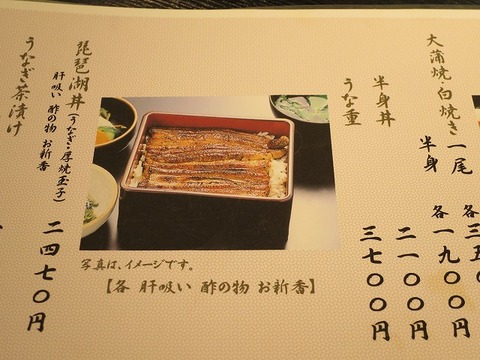 大蒲焼・白焼き
一尾 各三五
半身 各一九〇〇円
半身丼 二一〇〇円
うな重 三七〇〇円
写真は、イメージです。
【各 肝吸い 酢の物 お新香】
琵琶湖丼(うなぎ・厚焼玉子)
肝吸い 酢の物 お新香
二四七〇円
うなぎ茶漬け